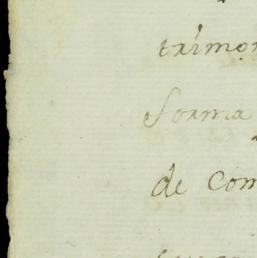 trimon
forma
de Com